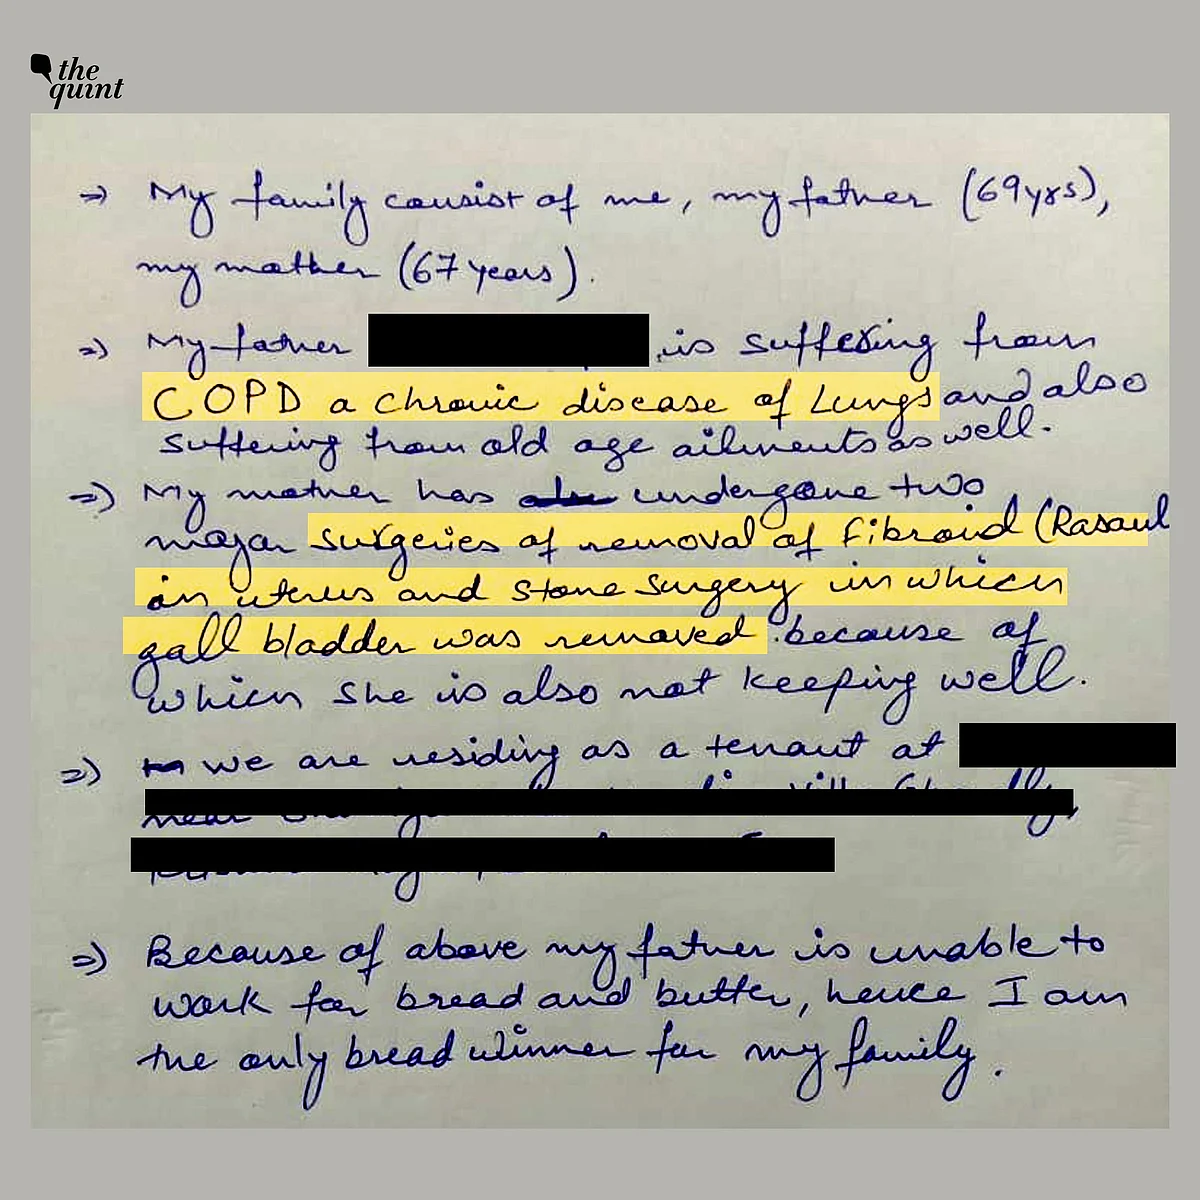 the
quint
⇒ My family consist of me, my father (69yrs),
my mother (67 years).
⇒ My father is suffering from
COPD a chronic disease of Lungs and also
suffering from old age ailments as well.
⇒ My mother has undergone two
major surgeries of removal of fibroid (Rasaul
in uterus and stone surgery in which
gall bladder was removed. because of
which she is also not keeping well.
⇒ we are residing as a tenant at
near
⇒ Because of above my father is unable to
work for bread and butter, hence I am
the only bread winner for my family.